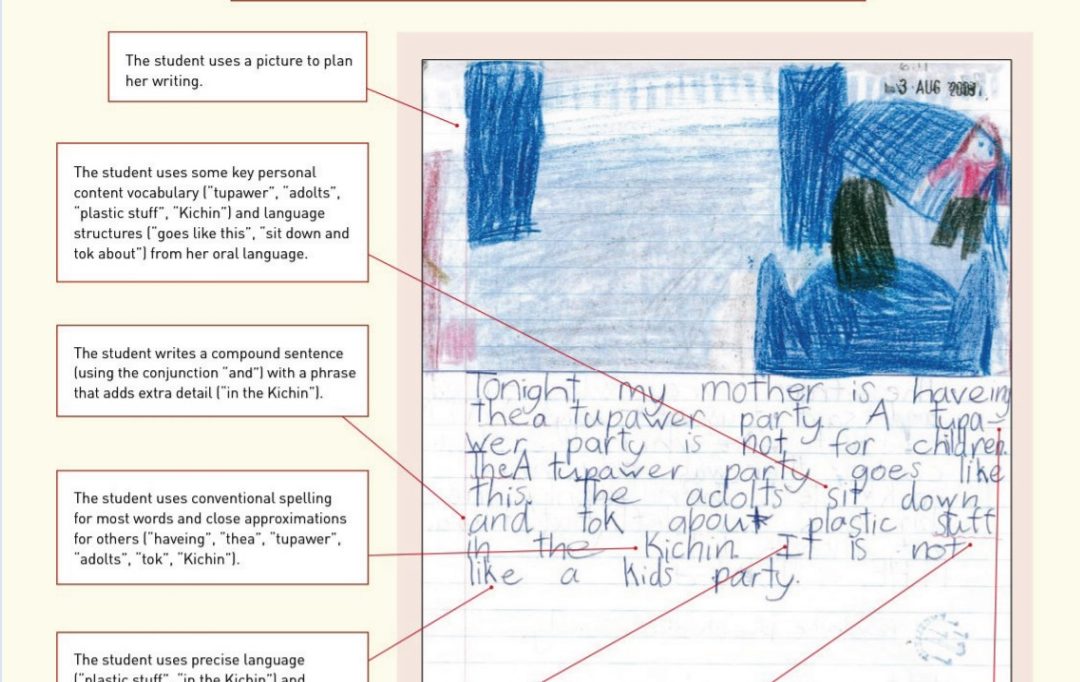 The student uses a picture to plan
her writing.
The student uses some key personal
content vocabulary ("tupawer", "adolts",
"plastic stuff", "Kichin") and language
structures ("goes like this", "sit down and
tok about") from her oral language.
The student writes a compound sentence
(using the conjunction "and") with a phrase
that adds extra detail ("in the Kichin").
The student uses conventional spelling
for most words and close approximations
for others ("haveing", "thea", "tupawer",
"adolts", "tok", "Kichin").
The student uses precise language
("plastic stuff", "in the Kichin") and
3 AUG
Tonight my mother is haveing
thea tupawer party. A tupa-
wer party is not for children.
TheA tupawer party goes like
this. The adolts sit down
and tok about plastic stuff
in the Kichin. It is not
like a kids party.